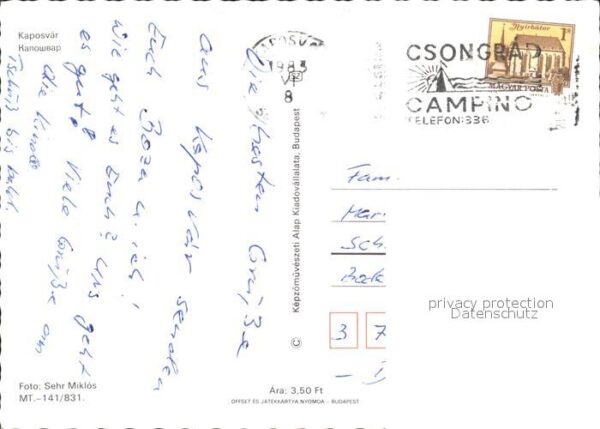 Kaposvár
Капошвар
Die besten Grüße
aus Kaposvár senden
Euch Boza u. ich!
Wie geht es Euch? Uns geht
es gut! Viele Grüße an
die Kinder
Tschüß bis bald.
Foto: Sehr Miklós
MT.–141/831.
Képzőművészeti Alap Kiadóvállalata, Budapest
©
Ára: 3,50 Ft
OFFSET ÉS JÁTÉKKÁRTYA NYOMDA – BUDAPEST
KAPOSVÁR
1983
8
Nyírbátor
1Ft
MAGYAR POSTA
CSONGRÁD
CAMPING
TELEFON:336
Fam.
3 7
privacy protection
Datenschutz